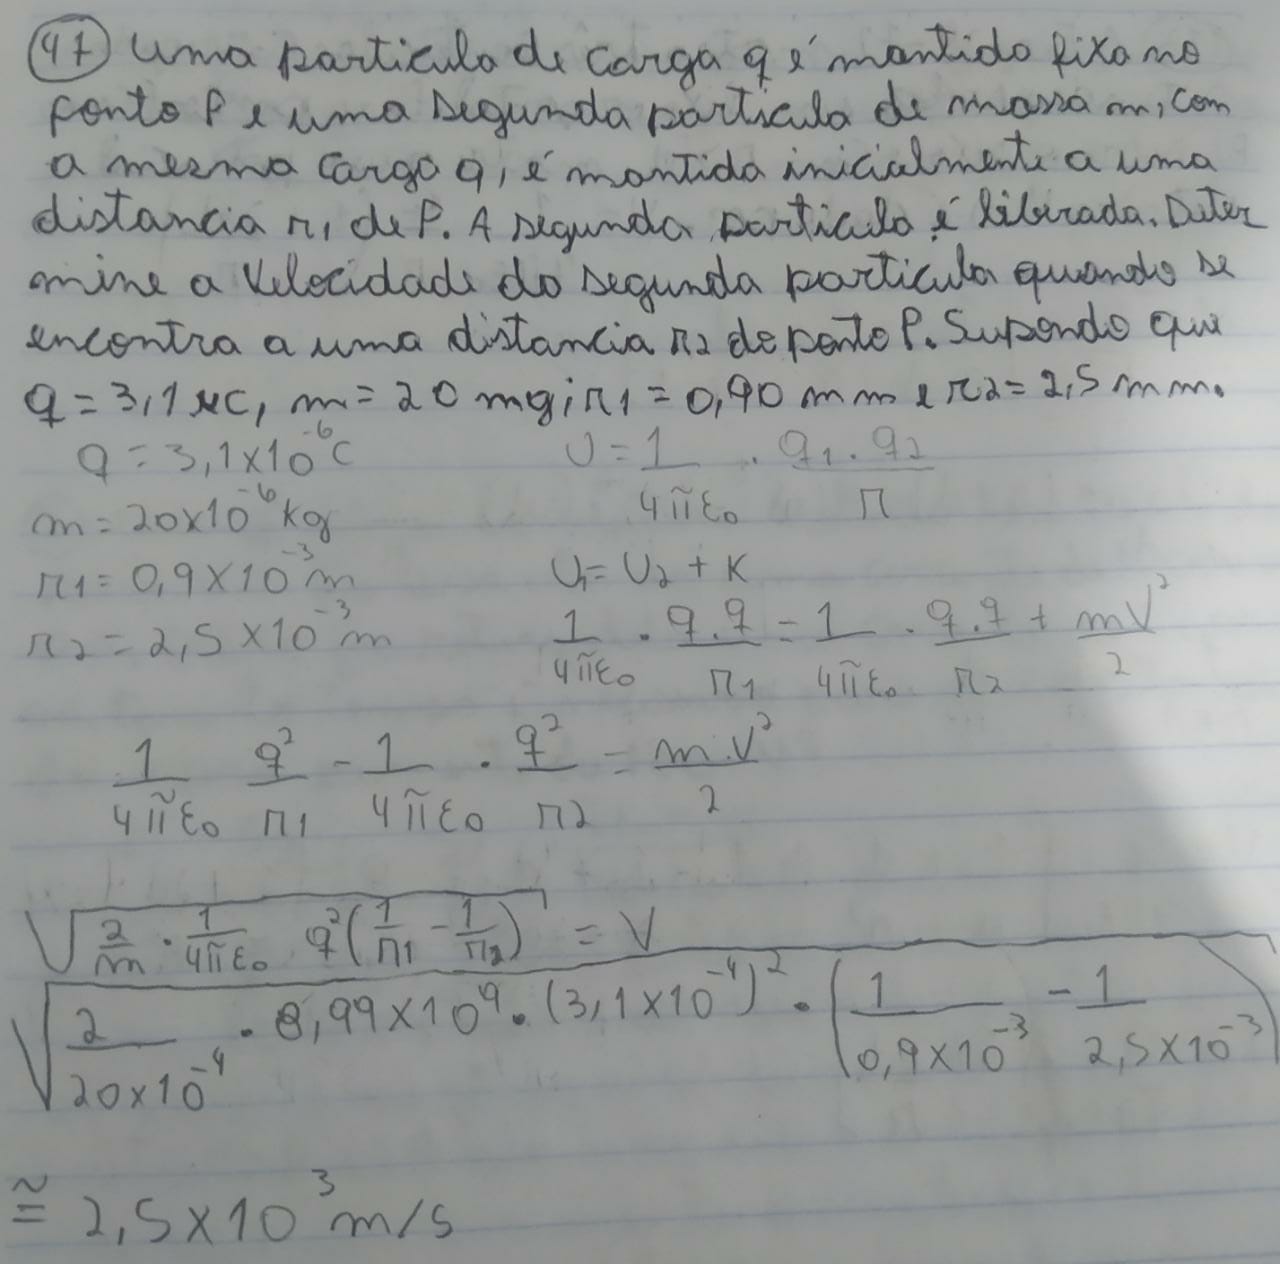 47) Uma particula de carga q é mantido fixo no
ponto P e uma segunda particula de massa m, com
a mesma carga q, é mantida inicialmente a uma
distancia r1 de P. A segunda particula é liberada. Deter
mine a velocidade do segunda particula quando se
encontra a uma distancia r2 do ponto P. Supondo que
q = 3,1 μC, m = 20 mg; r1 = 0,90 mm e r2 = 2,5 mm.
q = 3,1x10^-6 C
U = 1/4πε0 . q1.q2/r
m = 20x10^-6 kg
r1 = 0,9x10^-3 m
U1 = U2 + K
r2 = 2,5x10^-3 m
1/4πε0 . q.q/r1 = 1/4πε0 . q.q/r2 + mV²/2
1/4πε0 q²/r1 - 1/4πε0 . q²/r2 = m.V²/2
√(2/m . 1/4πε0 q² (1/r1 - 1/r2)) = V
√(2/20x10^-4 . 8,99x10^9 . (3,1x10^-4)² . (1/0,9x10^-3 - 1/2,5x10^-3))
≅ 2,5x10³ m/s